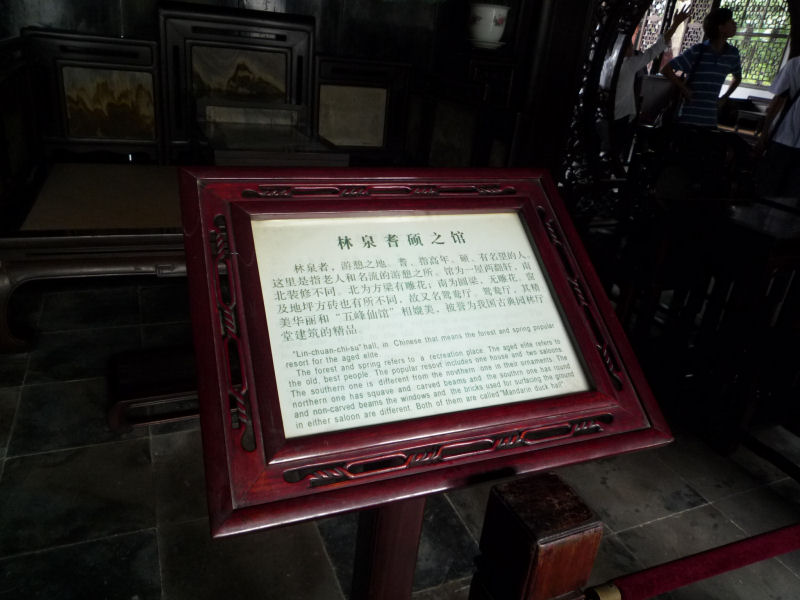 林泉耆硕之馆
林泉者，游憩之地。耆、指高年。硕、有名望的人。
这里是指老人和名流的游憩之所。馆为一屋两翻轩，南
北装修不同。北为方梁有雕花；南为圆梁，无雕花。窗
及地坪方砖也有所不同，故又名鸳鸯厅。鸳鸯厅，其精
美华丽和“五峰仙馆”相媲美，被誉为我国古典园林厅
堂建筑的精品。
"Lin-chuan-chi-su" hall, in Chinese that means the forest and spring popular
resort for the aged elite.
The forest and spring refers to a recreation place. The aged elite refers to
the old, best people. The popular resovt includes one house and two saloons.
The southern one is different from the northern one in their ornaments. The
northern one has squave and carved beams and the southrn one has round
and non-carved beams the windows and the bricks used for surfacing the ground
in either saloon are different. Both of them are called "Mandarin duck hall"